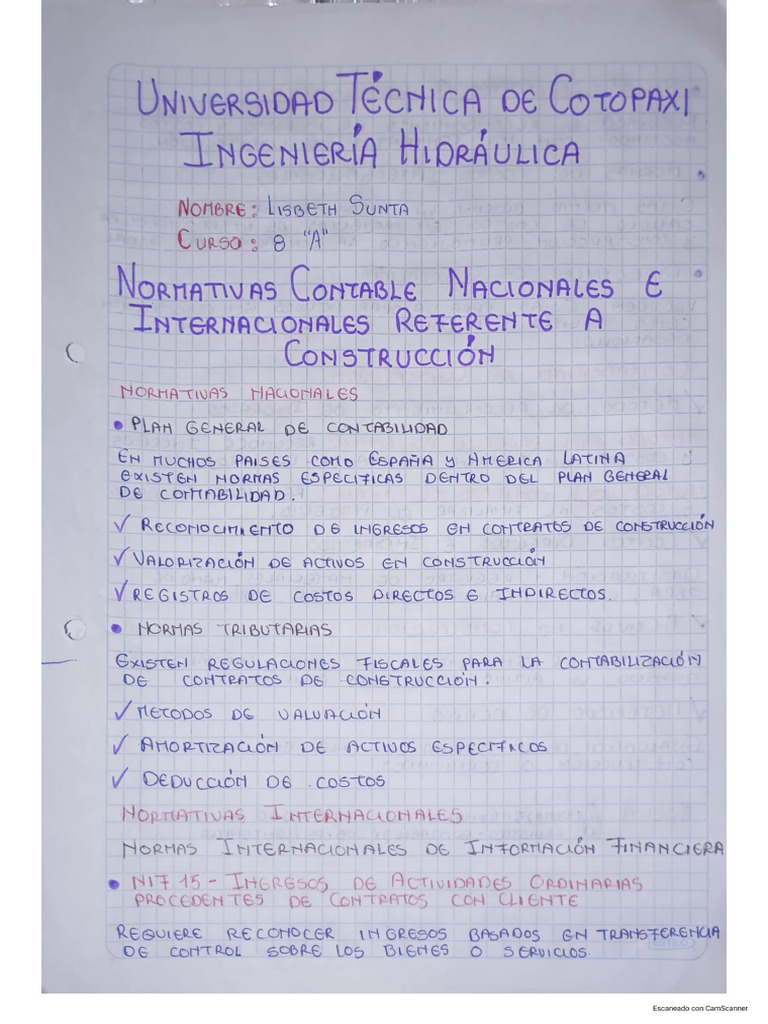 UNIVERSIDAD TÉCNICA DE COTOPAXI
INGENIERÍA HIDRÁULICA
NOMBRE: LISBETH SUNTA
CURSO: 8 "A"
NORMATIVAS CONTABLE NACIONALES E
INTERNACIONALES REFERENTE A
CONSTRUCCIÓN
NORMATIVAS NACIONALES
• PLAN GENERAL DE CONTABILIDAD
EN MUCHOS PAISES COMO ESPAÑA Y AMERICA LATINA
EXISTEN NORMAS ESPECIFICAS DENTRO DEL PLAN GENERAL
DE CONTABILIDAD.
✓ RECONOCIMIENTO DE INGRESOS EN CONTRATOS DE CONSTRUCCIÓN
✓ VALORIZACIÓN DE ACTIVOS EN CONSTRUCCIÓN
✓ REGISTROS DE COSTOS DIRECTOS E INDIRECTOS.
• NORMAS TRIBUTARIAS
EXISTEN REGULACIONES FISCALES PARA LA CONTABILIZACIÓN
DE CONTRATOS DE CONSTRUCCIÓN.
✓ METODOS DE VALUACIÓN
✓ AMORTIZACIÓN DE ACTIVOS ESPECIFICOS
✓ DEDUCCIÓN DE COSTOS
NORMATIVAS INTERNACIONALES
NORMAS INTERNACIONALES DE INFORMACIÓN FINANCIERA
• NIIF 15 - INGRESOS DE ACTIVIDADES ORDINARIAS
PROCEDENTES DE CONTRATOS CON CLIENTE
REQUIERE RECONOCER INGRESOS BASADOS EN TRANSFERENCIA
DE CONTROL SOBRE LOS BIENES O SERVICIOS
Escaneado con CamScanner